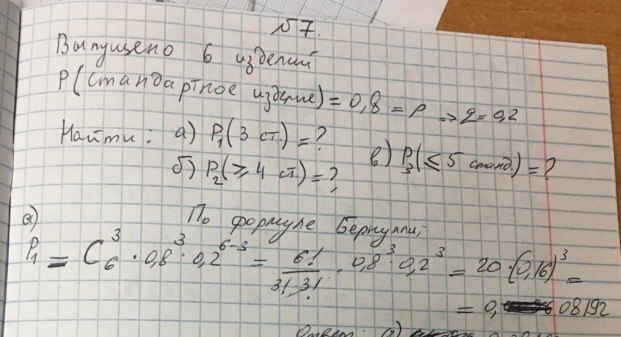 №7.
Выпущено 6 изделий
P(стандартное изделие) = 0,8 = p => q = 0,2
Найти: а) P₁(3 ст.) = ?
б) P₂(≥ 4 ст.) = ?
в) P₃(≤ 5 станд.) = ?
По формуле Бернулли,
а)
P₁ = C₆³ · 0,8³ · 0,2⁶⁻³ = 6!/(3!·3!) · 0,8³ · 0,2³ = 20 · (0,16)³ =
= 0,08192
Ответ: а)